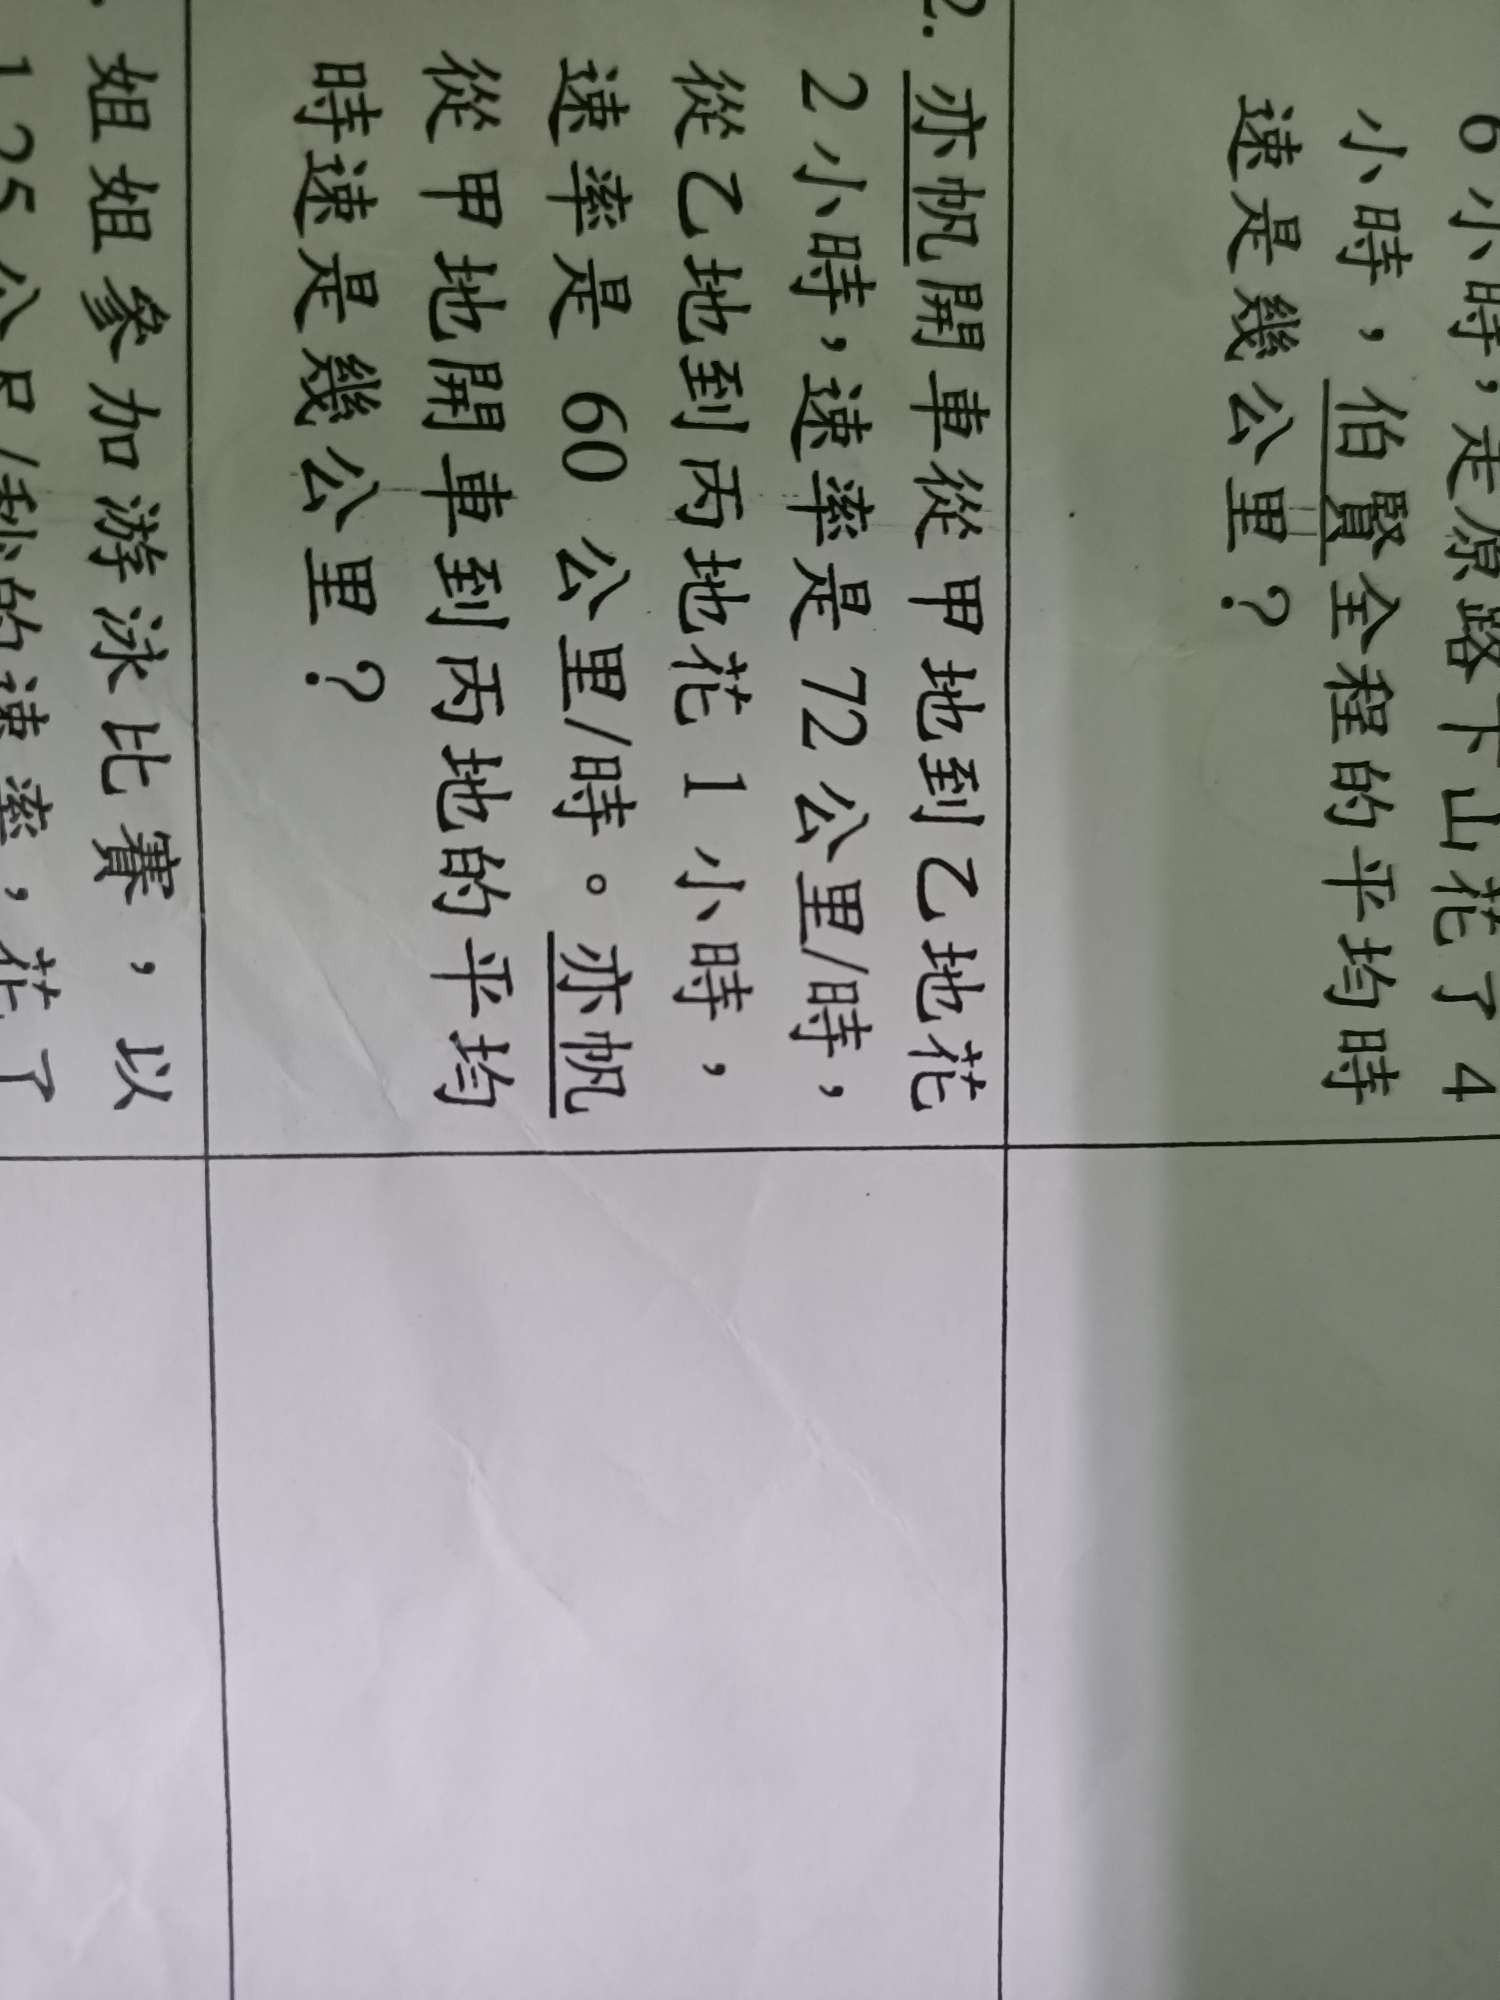 6小時，走原路下山花了 4
小時，伯賢全程的平均時
速是幾公里？
2. 亦帆開車從甲地到乙地花
2小時，速率是72公里/時，
從乙地到丙地花 1 小時，
速率是 60 公里/時。亦帆
從甲地開車到丙地的平均
時速是幾公里？
姐姐參加游泳比賽，以
1.25公尺/秒的速率，花了